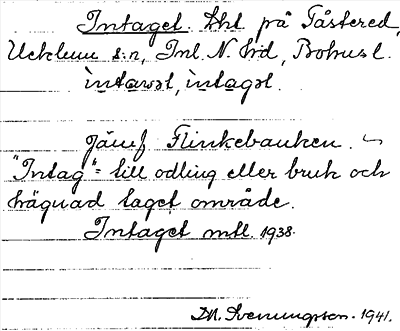 Intaget. thl på Tåstered,
Ucklum s:n, Inl. N. hrd, Bohusl.
intawət, intagət.
Jämf Flinkebauken.
"Intag" = till odling eller bruk och
hägnad taget område.
Intaget mtl. 1938.
M. Svenungson. 1941.